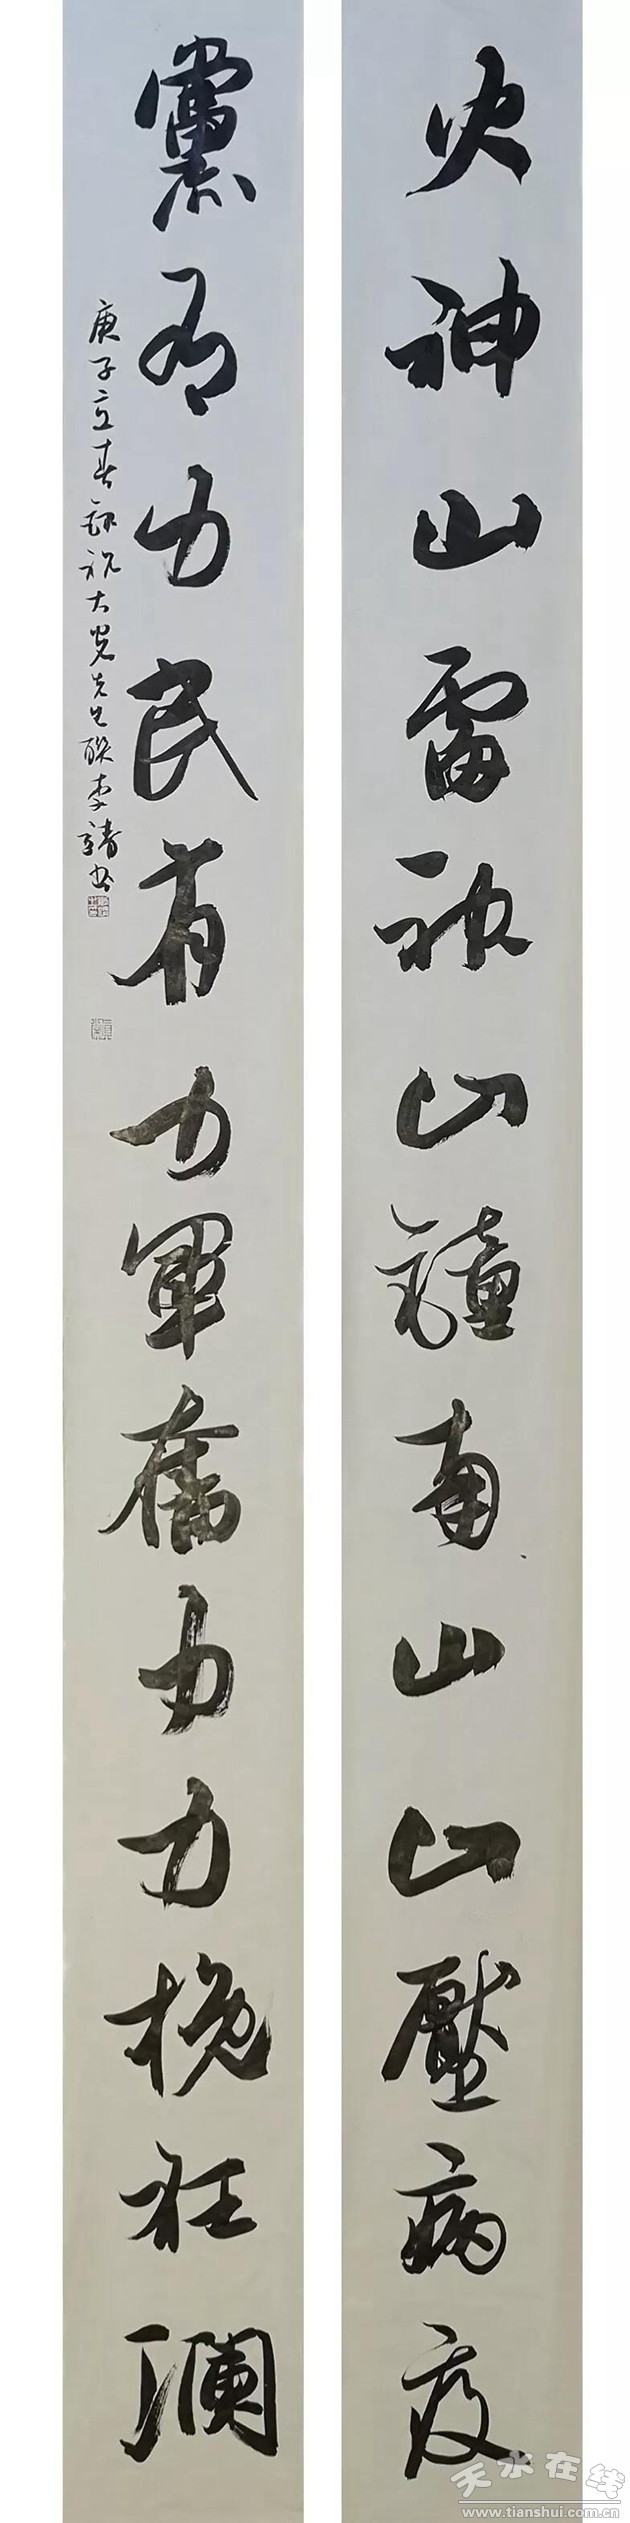 火神山雷神山鐘南山山壓病疫
黨有力民有力軍奮力力挽狂瀾
庚子立春錄祝大先生联李靖书
天水在线
www.tianshui.com.cn